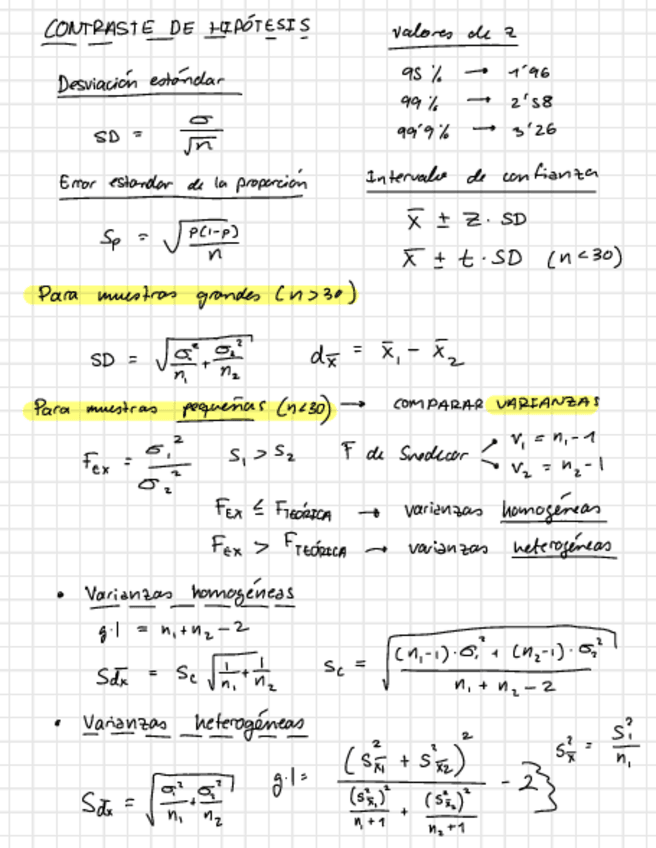 CONTRASTE DE HIPÓTESIS
Valores de z
95 % → 1'96
99 % → 2'58
99'9 % → 3'26
Desviación estándar
SD = σ/√n
Error estandar de la proporción
Sp = √(p(1-p)/n)
Intervalo de confianza
x̄ ± z · SD
x̄ ± t · SD (n<30)
Para muestras grandes (n>30)
SD = √(σ₁²/n₁ + σ₂²/n₂) dx̄ = x̄₁ - x̄₂
Para muestras pequeñas (n<30) → COMPARAR VARIANZAS
Fex = σ₁²/σ₂² S₁ > S₂ F de Snedecor
v₁ = n₁-1
v₂ = n₂-1
FEX ≤ FTEÓRICA → varianzas homogéneas
FEX > FTEÓRICA → varianzas heterogéneas
• Varianzas homogéneas
g.l = n₁+n₂-2
Sdx̄ = Sc √(1/n₁ + 1/n₂) Sc = √(((n₁-1)·σ₁² + (n₂-1)·σ₂²)/(n₁+n₂-2))
• Varianzas heterogéneas
Sdx̄ = √(σ₁²/n₁ + σ₂²/n₂) g.l = (S²x̄₁ + S²x̄₂)²/((S²x̄₁)²/(n₁+1) + (S²x̄₂)²/(n₂+1)) - 2} S²x̄ = S₁²/n₁